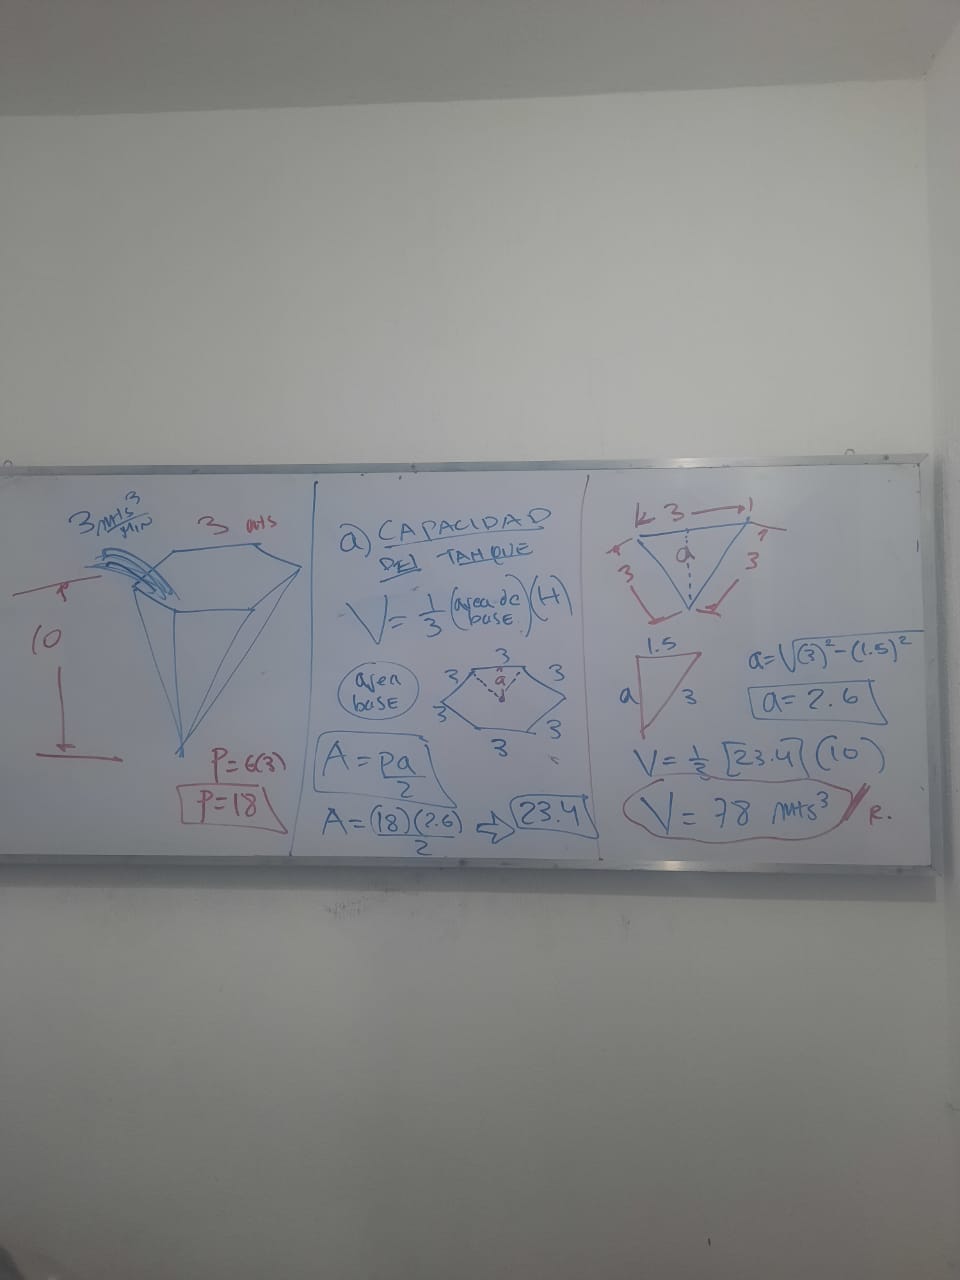 3 mts³/MIN
3 mts
10
P=6(3)
P=18
a) CAPACIDAD
DEL TANQUE
V= 1/3 (area de base)(H)
area
base
3
3
3
a
3
3
3
A= pa/2
A= (18)(2.6)/2 ⇨ 23.4
3
a
3
3
1.5
a
3
a=√(3)²-(1.5)²
a= 2.6
V= 1/3 [23.4] (10)
V= 78 mts³ // R.